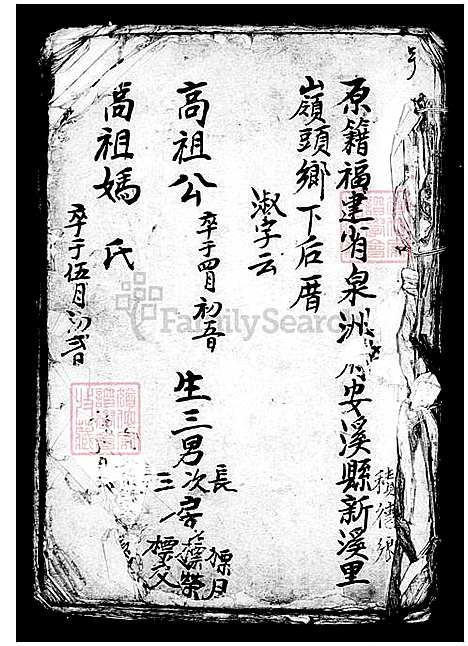 原籍福建省泉洲府安溪縣新溪里
積德鄉
嶺頭鄉下后厝
淑字云
高祖公
卒于四月初五日
生三男
長標月
次房標榮
三標文
高祖媽 氏
卒于伍月初二日
FamilySearch